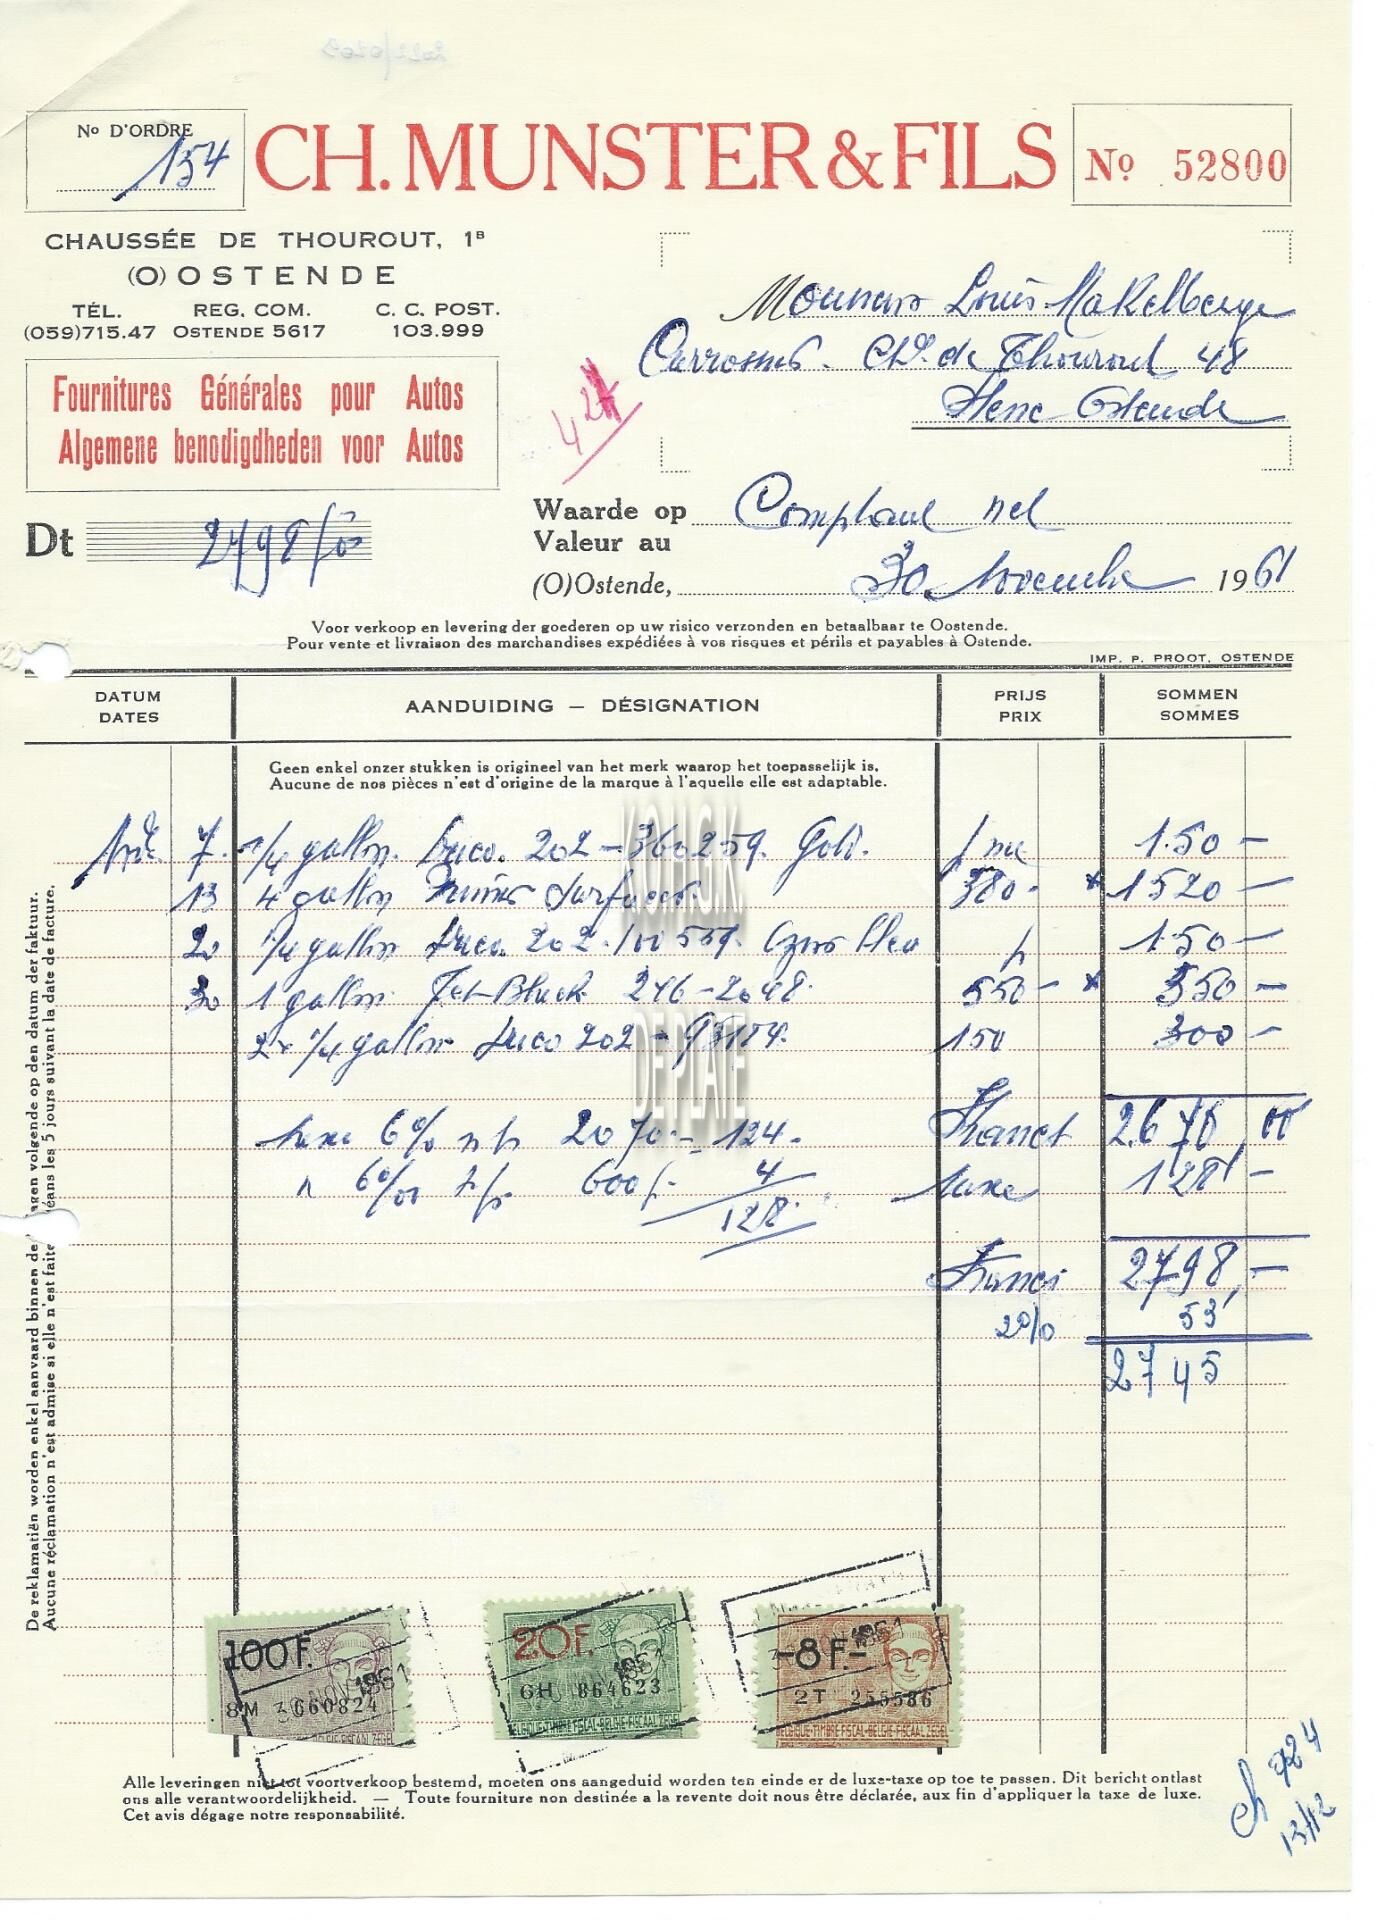 No D'ORDRE
154
CH. MUNSTER & FILS
No 52800
CHAUSSÉE DE THOUROUT, 1B
(O) OSTENDE
TÉL. REG. COM. C. C. POST.
(059)715.47 OSTENDE 5617 103.999
Fournitures Générales pour Autos
Algemene benodigdheden voor Autos
Louis Makelberge
Chée de Thourout 48
Ostende
Dt 2798
Waarde op
Valeur au
Comptant net
(O)Ostende, 30 Novembre 1961
Voor verkoop en levering der goederen op uw risico verzonden en betaalbaar te Oostende.
Pour vente et livraison des marchandises expédiées à vos risques et périls et payables à Ostende.
IMP. P. PROOT, OSTENDE
DATUM AANDUIDING — DÉSIGNATION PRIJS SOMMEN
DATES PRIX SOMMES
Geen enkel onzer stukken is origineel van het merk waarop het toepasselijk is.
Aucune de nos pièces n'est d'origine de la marque à l'aquelle elle est adaptable.
7. 1/4 gallon Duco. 202-360259. 150 —
13 4 gallon Surfacer. 380- * 1520 —
20 1/4 gallon Duco 202-100559. 150 —
30 1 gallon Jet-Black 246-2048. 550 — * 550 —
2 x 1/4 gallon Duco 202 - 150 300 —
taxe 6% 2070.- 124.- 2.670 00
6% 600 4 taxe 128 —
128.
2798, —
2% 53
2745
De reklamatiën worden enkel aanvaard binnen de dagen volgende op den datum der faktuur.
Aucune réclamation n'est admise si elle n'est faite dans les 5 jours suivant la date de facture.
KOHGK
DE PLATE
100F.
8M 660824
30 NOV 1961
BELGIQUE-TIMBRE FISCAL-BELGIE-FISCAAL ZEGEL
20F.
GH 864623
1961
BELGIQUE-TIMBRE FISCAL-BELGIE-FISCAAL ZEGEL
-8F.-
2T 255586
1961
BELGIQUE-TIMBRE FISCAL-BELGIE-FISCAAL ZEGEL
Alle leveringen niet tot voortverkoop bestemd, moeten ons aangeduid worden ten einde er de luxe-taxe op toe te passen. Dit bericht ontlast
ons alle verantwoordelijkheid. — Toute fourniture non destinée a la revente doit nous être déclarée, aux fin d'appliquer la taxe de luxe.
Cet avis dégage notre responsabilité.
ch 724
13/12